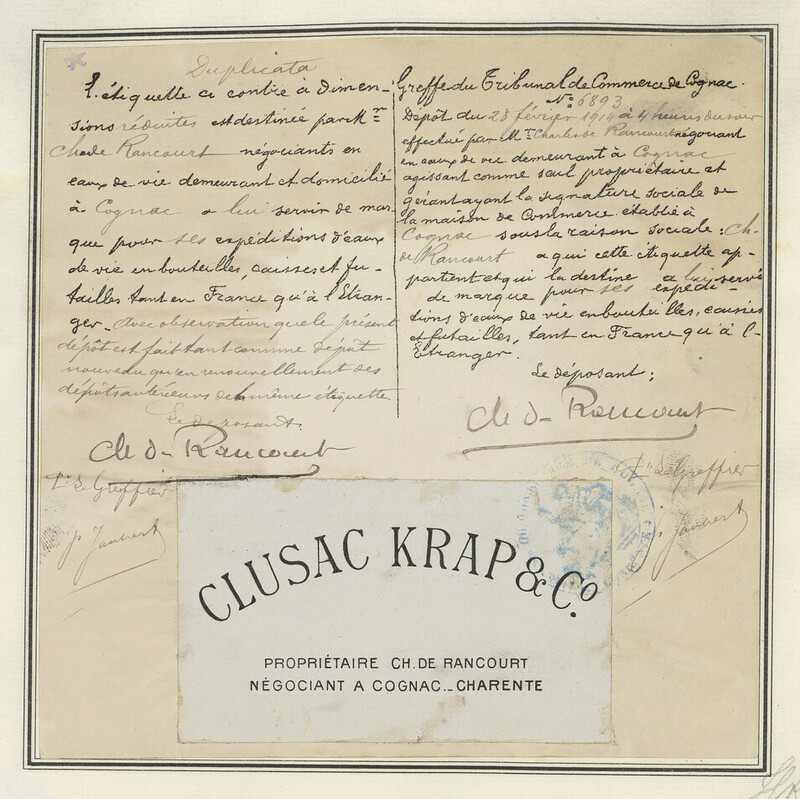 Duplicata
L'étiquette ci contre à dimen-
sions réduites est destinée par Mr
Ch. de Rancourt négociants en
eaux de vie demeurant et domicilié
à Cognac a lui servir de mar-
que pour ses expéditions d'eaux
de vie en bouteilles, caisses et fu-
tailles tant en France qu'à l'Etran-
ger. Avec observation que le présent
dépôt est fait tant comme dépôt
nouveau qu'en renouvellement des
dépôts antérieurs de la même étiquette
Le déposant.
Ch de Rancourt
Pr Le Greffier
Greffe du Tribunal de Commerce de Cognac.
No 6893
Dépôt du 28 février 1914 à 4 heures du soir
effectué par Mr Charles de Rancourt négociant
en eaux de vie demeurant à Cognac
agissant comme seul propriétaire et
gérant ayant la signature sociale de
la maison de Commerce établie à
Cognac sous la raison sociale : Ch.
de Rancourt a qui cette étiquette ap-
partient et qui la destine a lui servir
de marque pour ses expédi-
tions d'eaux de vie en bouteilles, caisses
et futailles, tant en France qu'à l'-
Etranger.
Le déposant :
Ch de Rancourt
Pr Le Greffier
CLUSAC KRAP & Co.
PROPRIÉTAIRE CH. DE RANCOURT
NÉGOCIANT A COGNAC _ CHARENTE